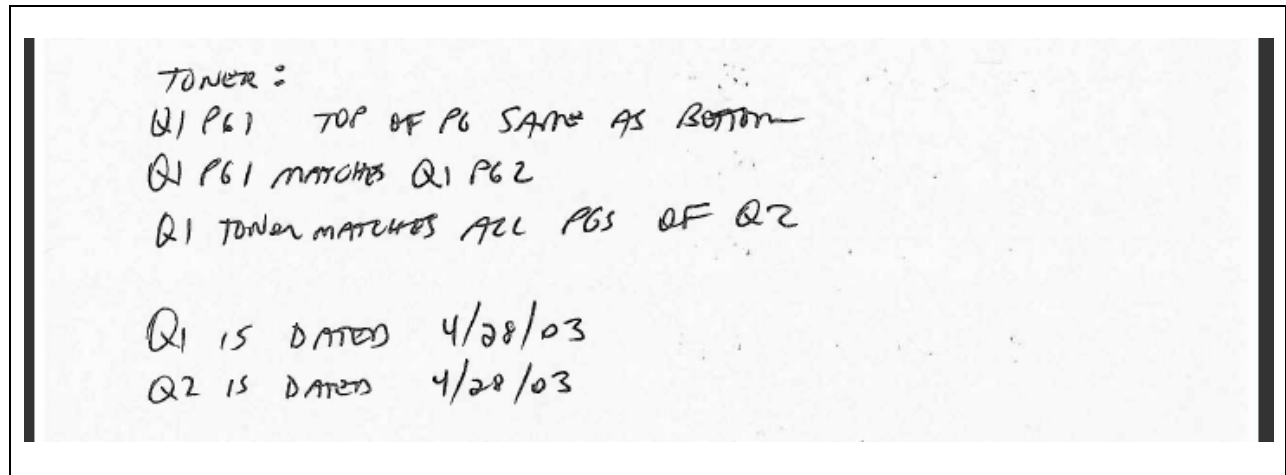 TONER:
Q1 PG1 TOP OF PG SAME AS BOTTOM
Q1 PG1 MATCHES Q1 PG2
Q1 TONER MATCHES ALL PGS OF Q2
Q1 IS DATED 4/28/03
Q2 IS DATED 4/28/03